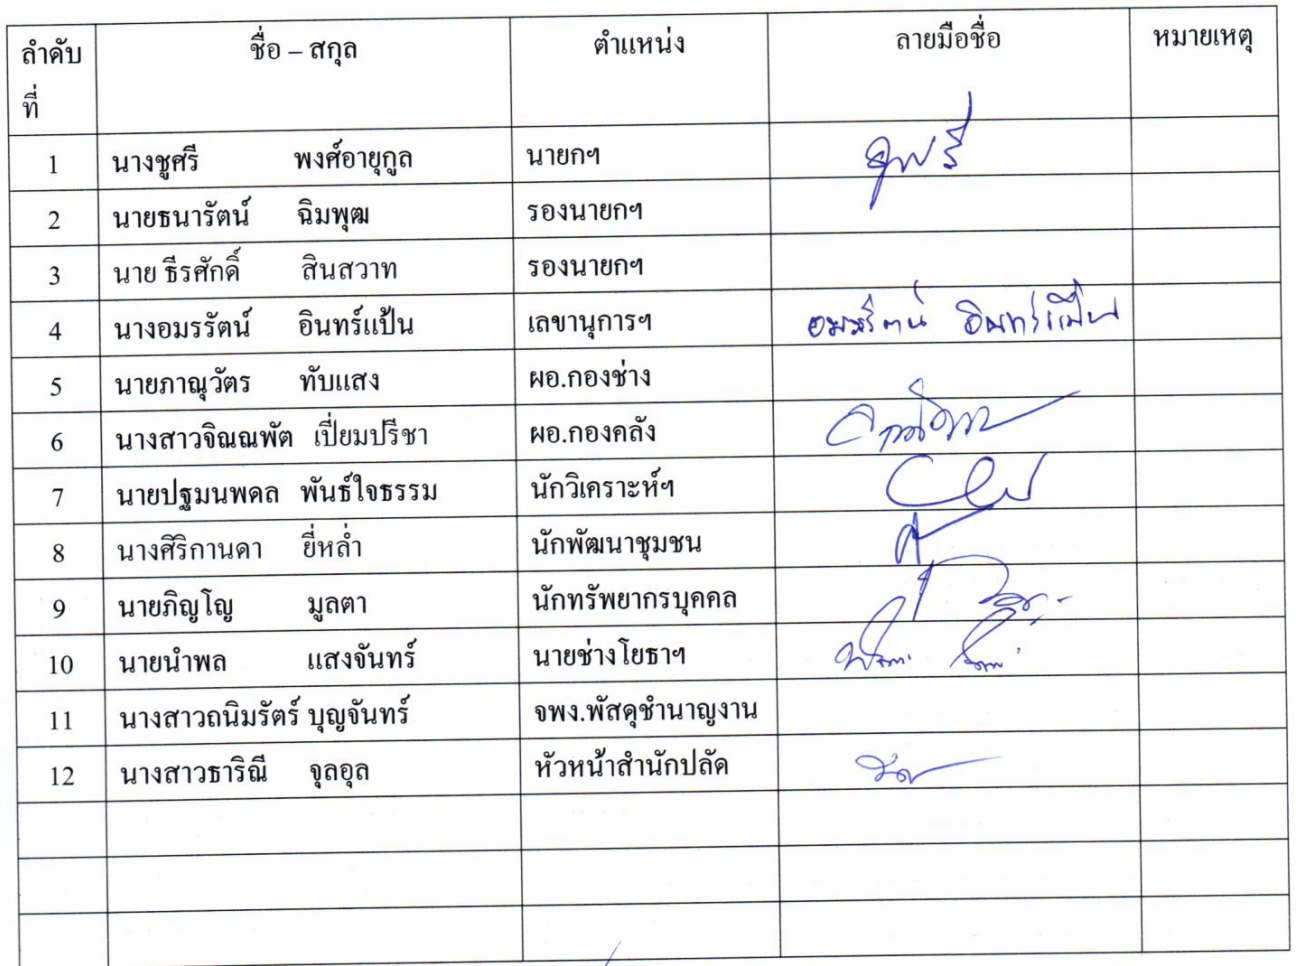 ลำดับที่ ชื่อ – สกุล ตำแหน่ง ลายมือชื่อ หมายเหตุ
1 นางชูศรี พงศ์อายุกูล นายกฯ
2 นายธนารัตน์ ฉิมพุฒ รองนายกฯ
3 นาย ธีรศักดิ์ สินสวาท รองนายกฯ
4 นางอมรรัตน์ อินทร์แป้น เลขานุการฯ อมรรัตน์ อินทร์แป้น
5 นายภาณุวัตร ทับแสง ผอ.กองช่าง
6 นางสาวจิณณพัต เปี่ยมปรีชา ผอ.กองคลัง
7 นายปฐมนพดล พันธ์ใจธรรม นักวิเคราะห์ฯ
8 นางศิริกานดา ยี่หล่ำ นักพัฒนาชุมชน
9 นายภิญโญ มูลตา นักทรัพยากรบุคคล
10 นายนำพล แสงจันทร์ นายช่างโยธาฯ
11 นางสาวถนิมรัตร์ บุญจันทร์ จพง.พัสดุชำนาญงาน
12 นางสาวธาริณี จุลอุล หัวหน้าสำนักปลัด